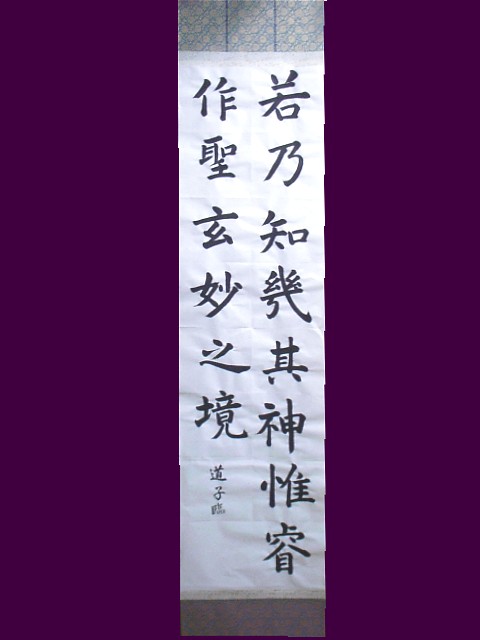 若乃知幾其神惟睿
作聖玄妙之境
道子臨